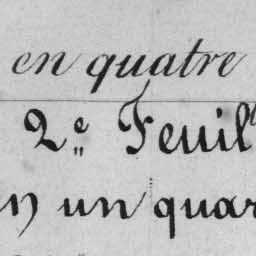 en quatre
2e Feuil
un quar